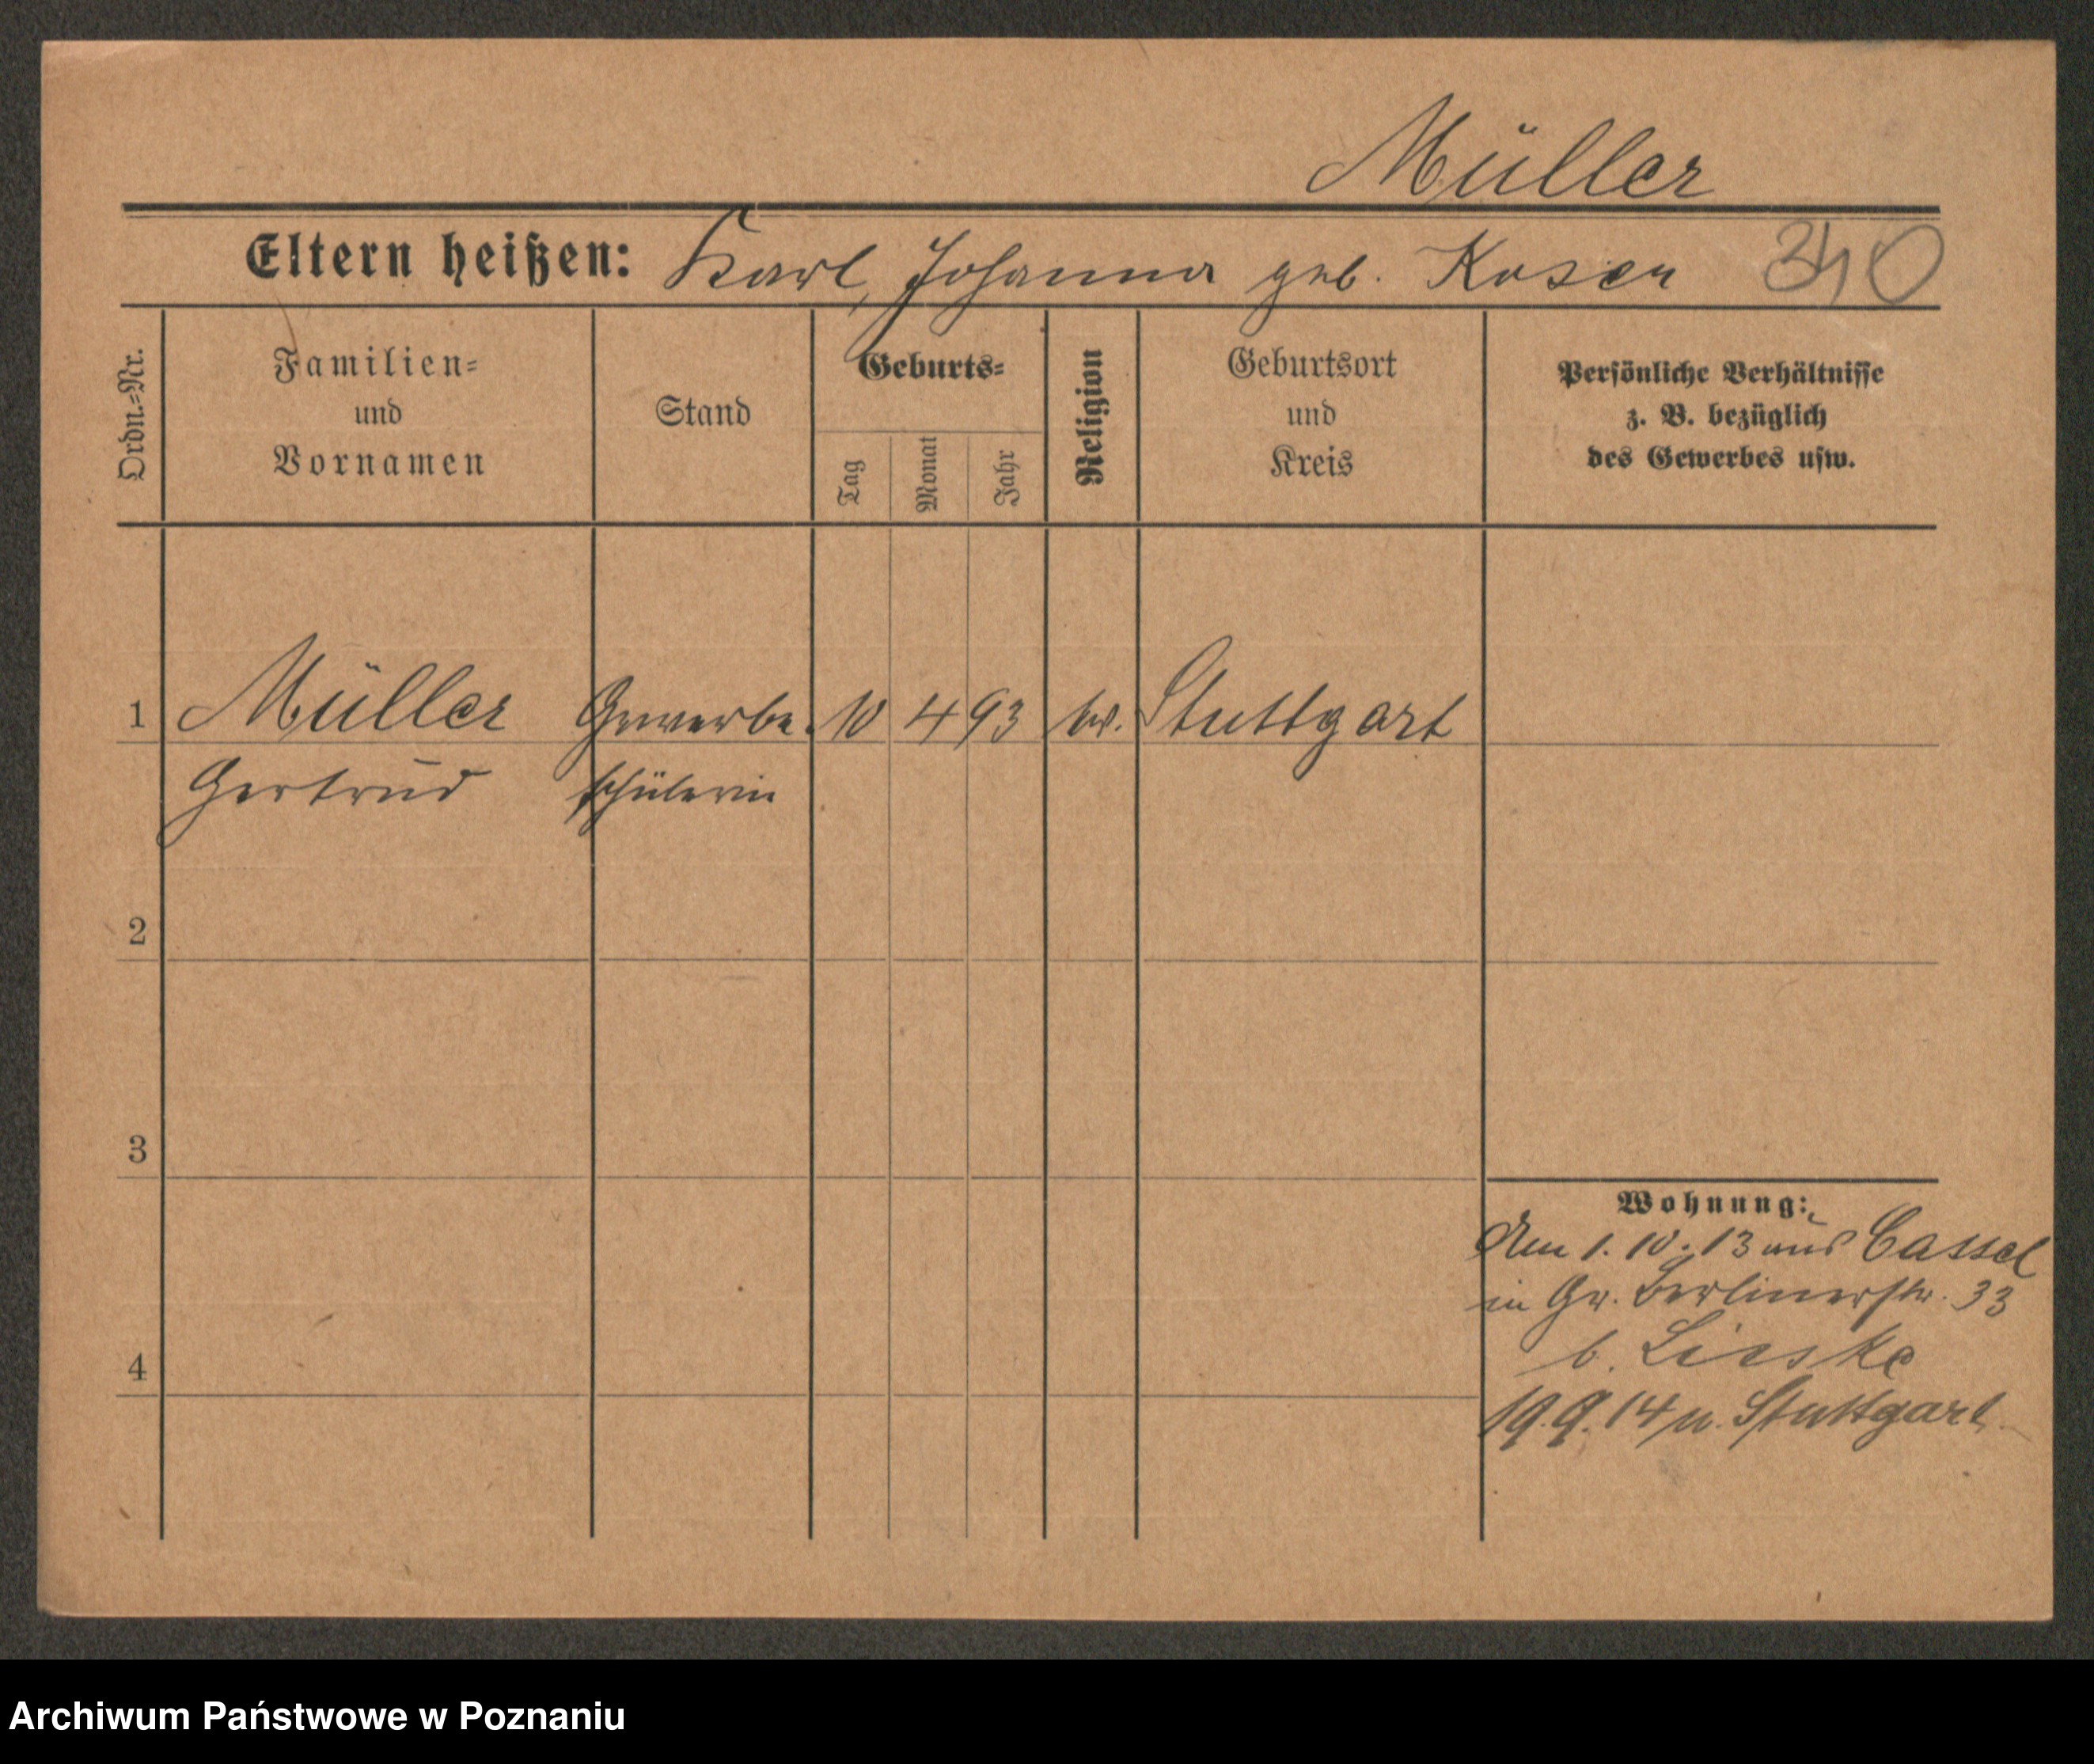 Müller
Eltern heißen: Karl, Johanna geb. Koser 340
Ordn.-Nr.
Familien-
und
Vornamen
Stand
Geburts-
Tag
Monat
Jahr
Religion
Geburtsort
und
Kreis
Persönliche Verhältnisse
z. B. bezüglich
des Gewerbes usw.
1 Müller Gewerbe. 10 4 93 ev. Stuttgart
Gertrud schülerin
2
3
Wohnung:
Am 1. 10. 13 aus Cassel
in Gr. Berlinerstr. 33
b. Lieske
4
19.9.14 n. Stuttgart
Archiwum Państwowe w Poznaniu